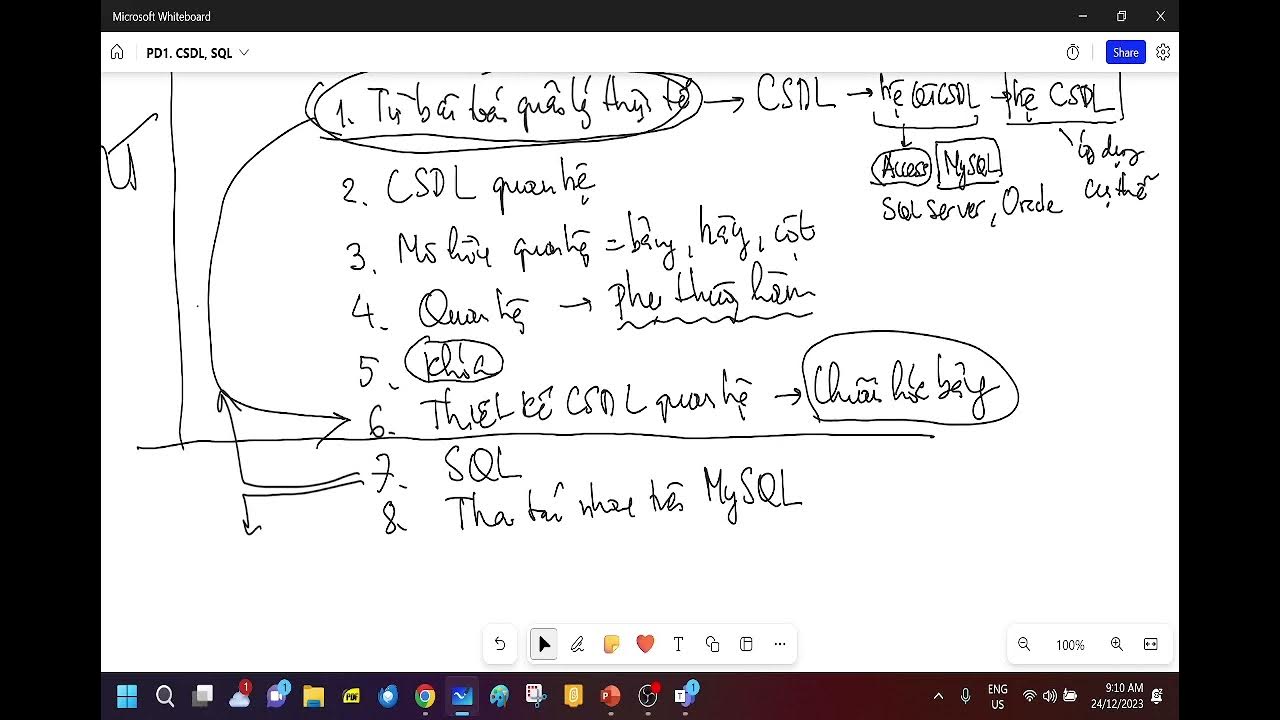 Microsoft Whiteboard
PD1. CSDL, SQL
Share
1. Từ bài toán quản lý thực tế → CSDL → hệ QTCSDL → hệ CSDL
Access MySQL
SQL Server, Oracle
cụ thể
2. CSDL quan hệ
3. Mô hình quan hệ = bảng, hàng, cột
4. Quan hệ → Phụ thuộc hàm
5. Khóa
6. Thiết kế CSDL quan hệ → Chuẩn hóa bảng
7. SQL
8. Thao tác MySQL
100%
ENG
US
9:10 AM
24/12/2023